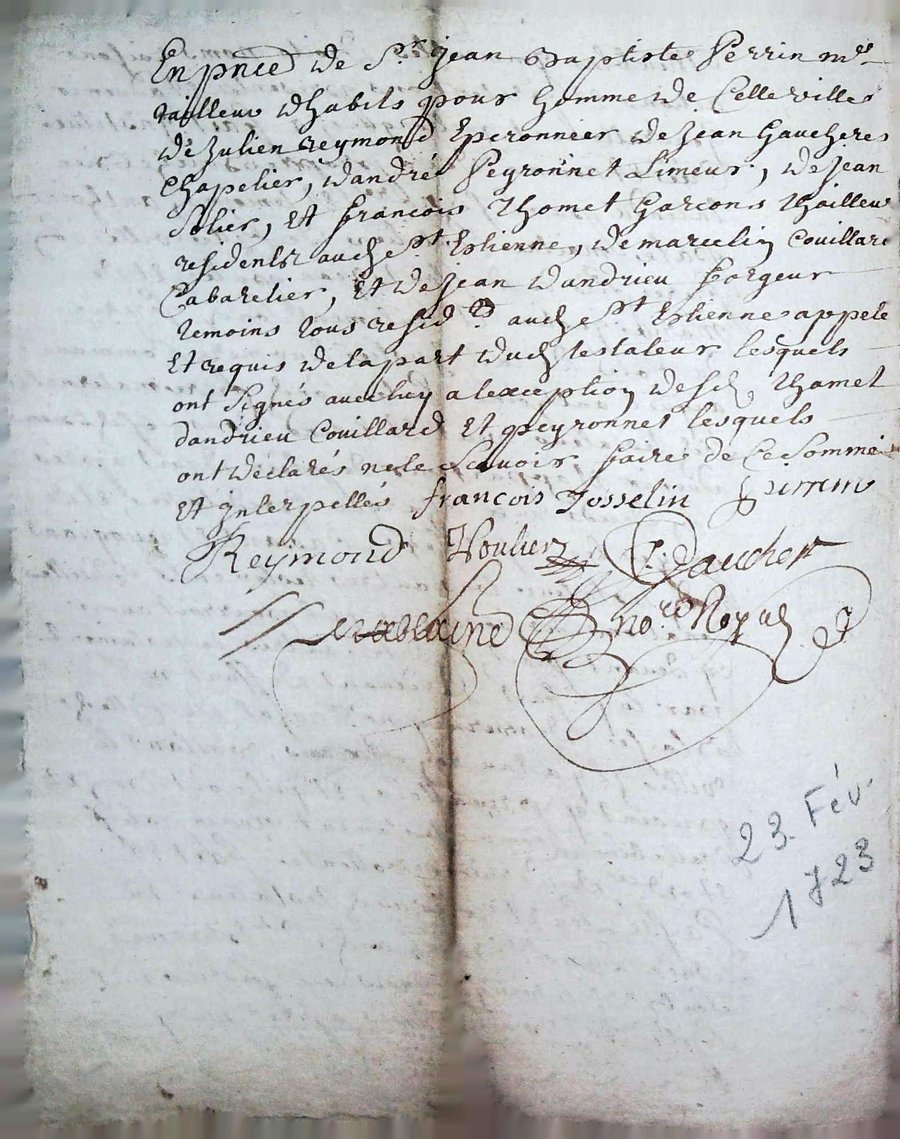 En pnce de Sr jean Baptiste Perrin me
tailleur dhabits pour homme de Celle ville
de Julien reymond Eperonnier de Jean Gaucher
Chapelier, dandré Peyronnet Limeur, de Jean
Solier, Et francois thomet Garcons thailleur
residents audt St Etienne, de marcelin Couillard
Cabaretier, Et de Jean dandrieu forgeur
temoins tous resid audt St Etienne appele
Et requis de la part dud testateur lesquels
ont signés avec luy a lexception desd thamet
dandrieu Couillard Et peyronnet lesquels
ont déclarés ne le Scavoir faire de Ce Sommé
Et jnterpellés francois Josselin Pirrin
Reymond Gaucher
nore Royal
23. Fév.
1723